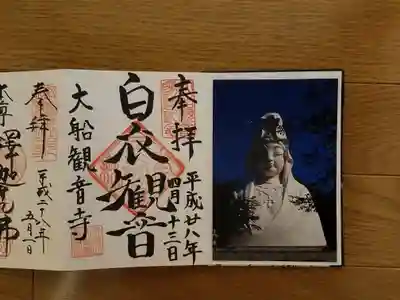 奉拝
平成廿八年
四月十三日
白衣観音
大船観音寺
奉拝
平成二十八年
五月一日
釋迦牟尼佛